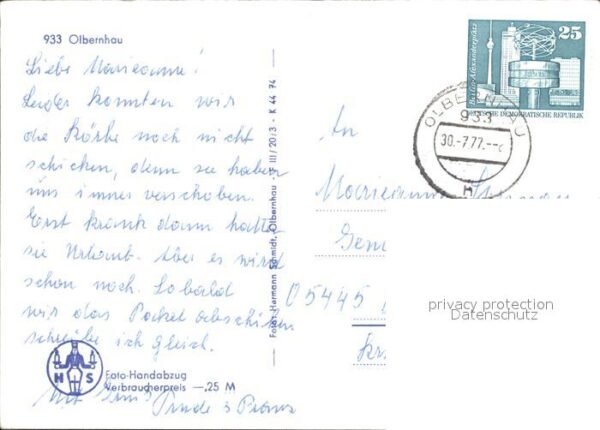 933 Olbernhau
Liebe Marieanne!
Leider konnten wir
die Körbe noch nicht
schicken, denn sie haben
uns immer verschoben.
Erst krank dann hatte
sie Urlaub. Aber es wird
schon noch. Sobald
wir das Packet abschicken
schreibe ich gleich.
H S
Foto-Handabzug
Verbraucherpreis —,25 M
Mit Gruß
Trude
Fotos: Hermann Schmidt, Olbernhau - III/20/3 - K 44 74
25
Berlin-Alexanderplatz
DEUTSCHE DEMOKRATISCHE REPUBLIK
OLBERNHAU
933
30.-7.77.--
H
An
Marieanne
05445
privacy protection
Datenschutz